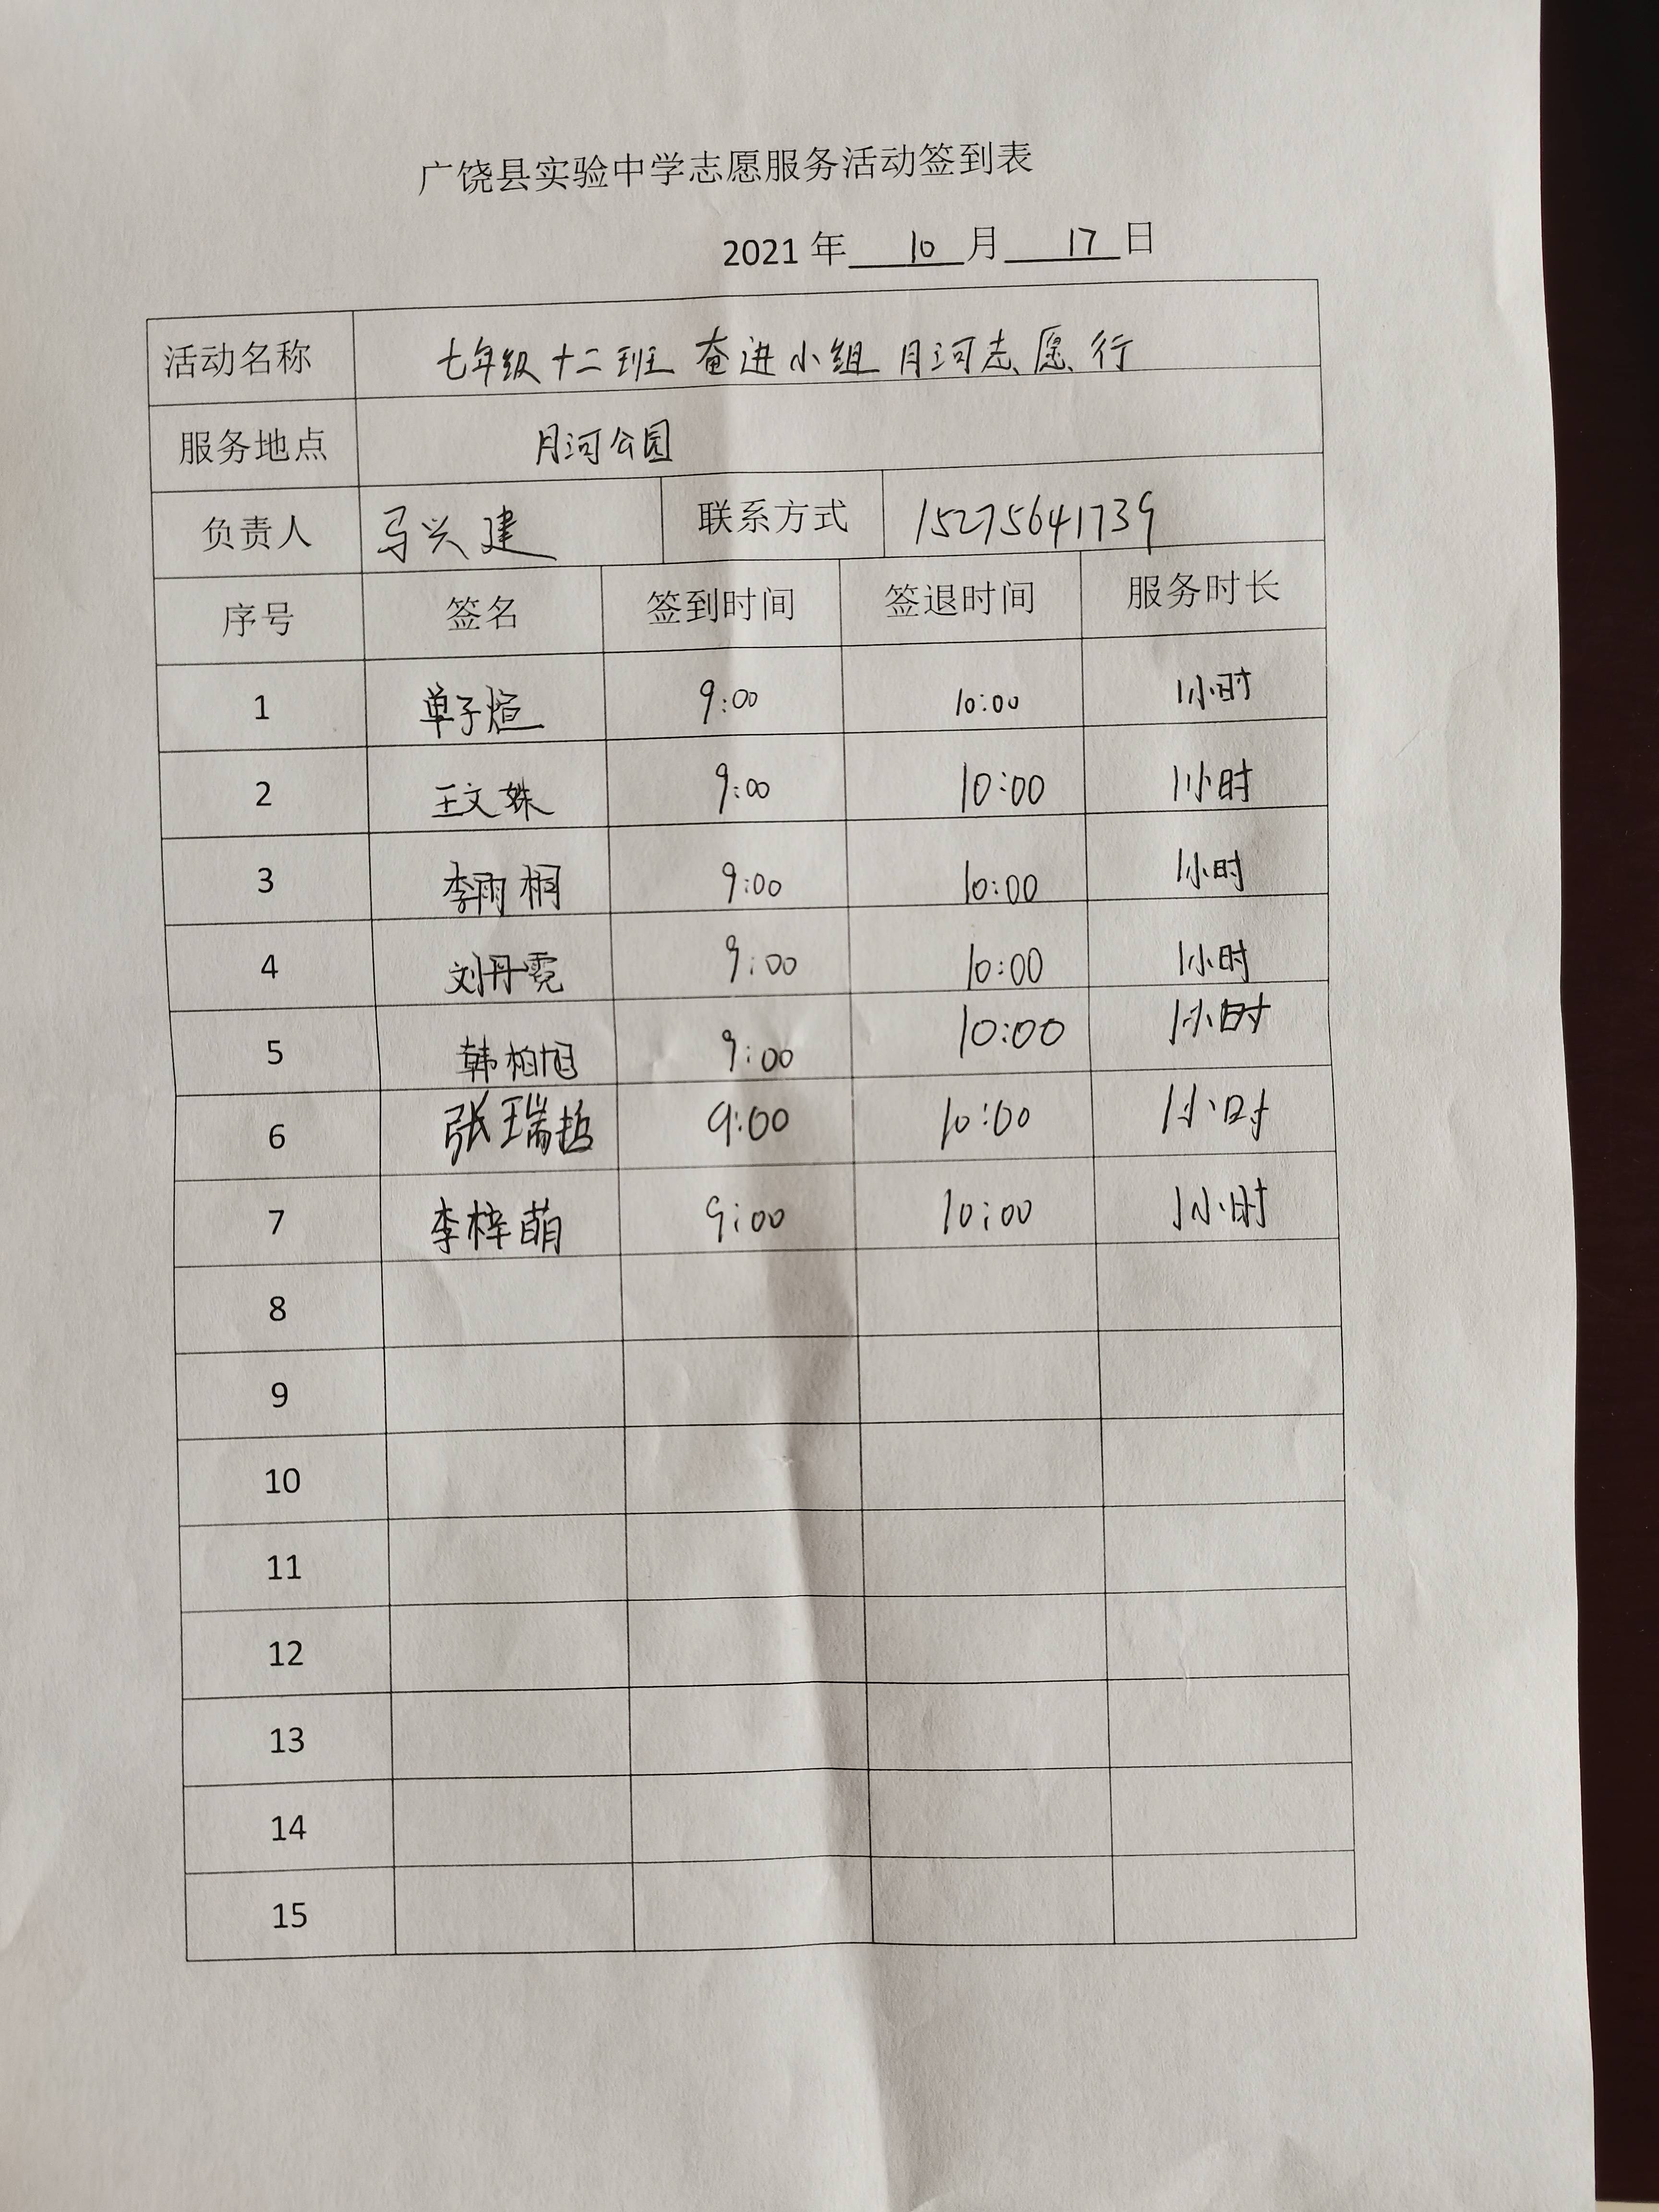 广饶县实验中学志愿服务活动签到表
2021 年 10 月 17 日
活动名称 七年级十二班 奋进小组月河志愿行
服务地点 月河公园
负责人 马兴建 联系方式 15275641739
序号 签名 签到时间 签退时间 服务时长
1 单子煊 9:00 10:00 1小时
2 王文姝 9:00 10:00 1小时
3 李雨桐 9:00 10:00 1小时
4 刘丹霓 9:00 10:00 1小时
5 韩柏旭 9:00 10:00 1小时
6 张瑞哲 9:00 10:00 1小时
7 李梓萌 9:00 10:00 1小时
8
9
10
11
12
13
14
15